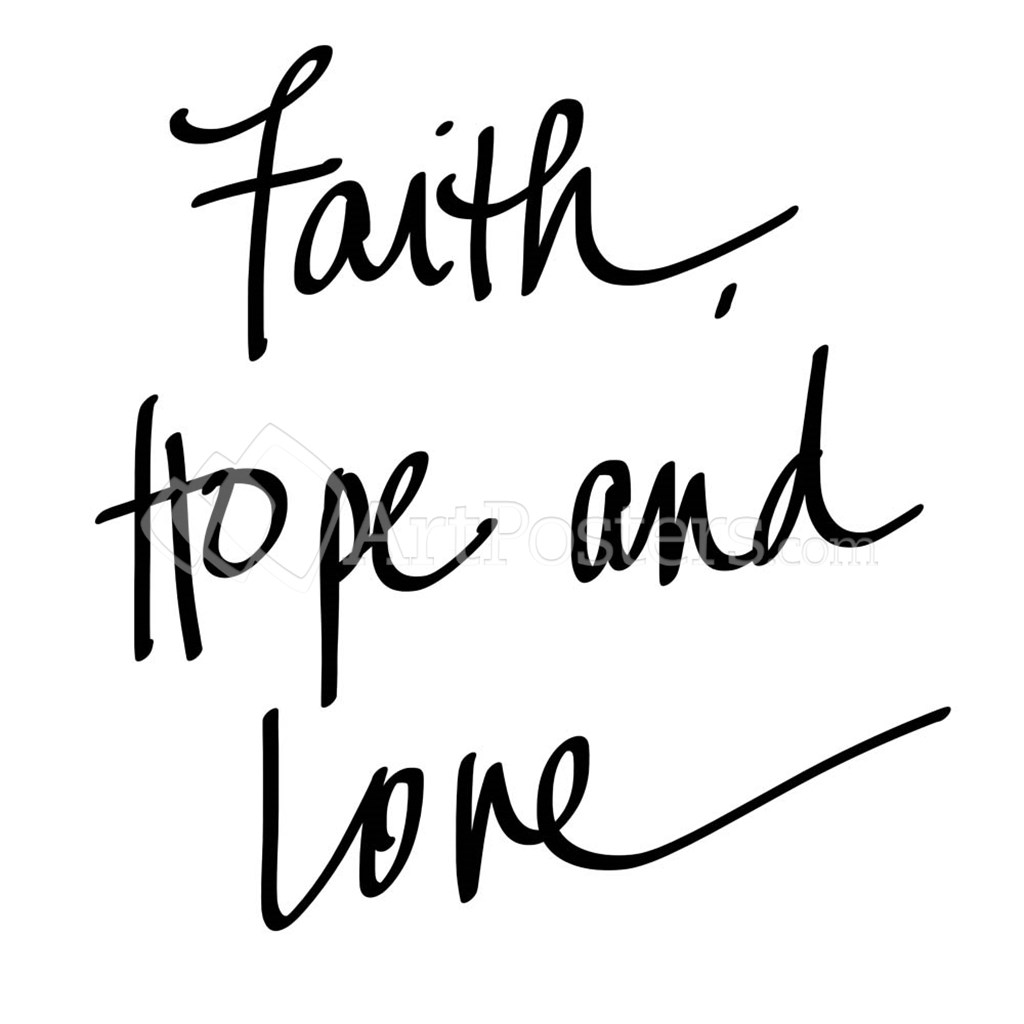 Faith,
Hope and
ArtPosters.com
Love